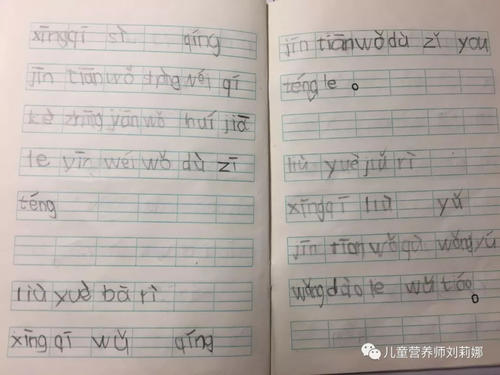 xīngqī sì qíng
jīn tiān wǒ shàng wéi qí
kè zhōng yān wǒ huí jiā
le yīn wéi wǒ dù zī
téng
liù yuè bā rì
xīngqī wǔ qíng
jīn tiān wǒ dù zǐ you
téng le 。
liù yuè jiǔ rì
xīngqī liù yǔ
jīn tiān wǒ qù wǎng yú
wǎng dào le wǔ táo 。
儿童营养师刘莉娜